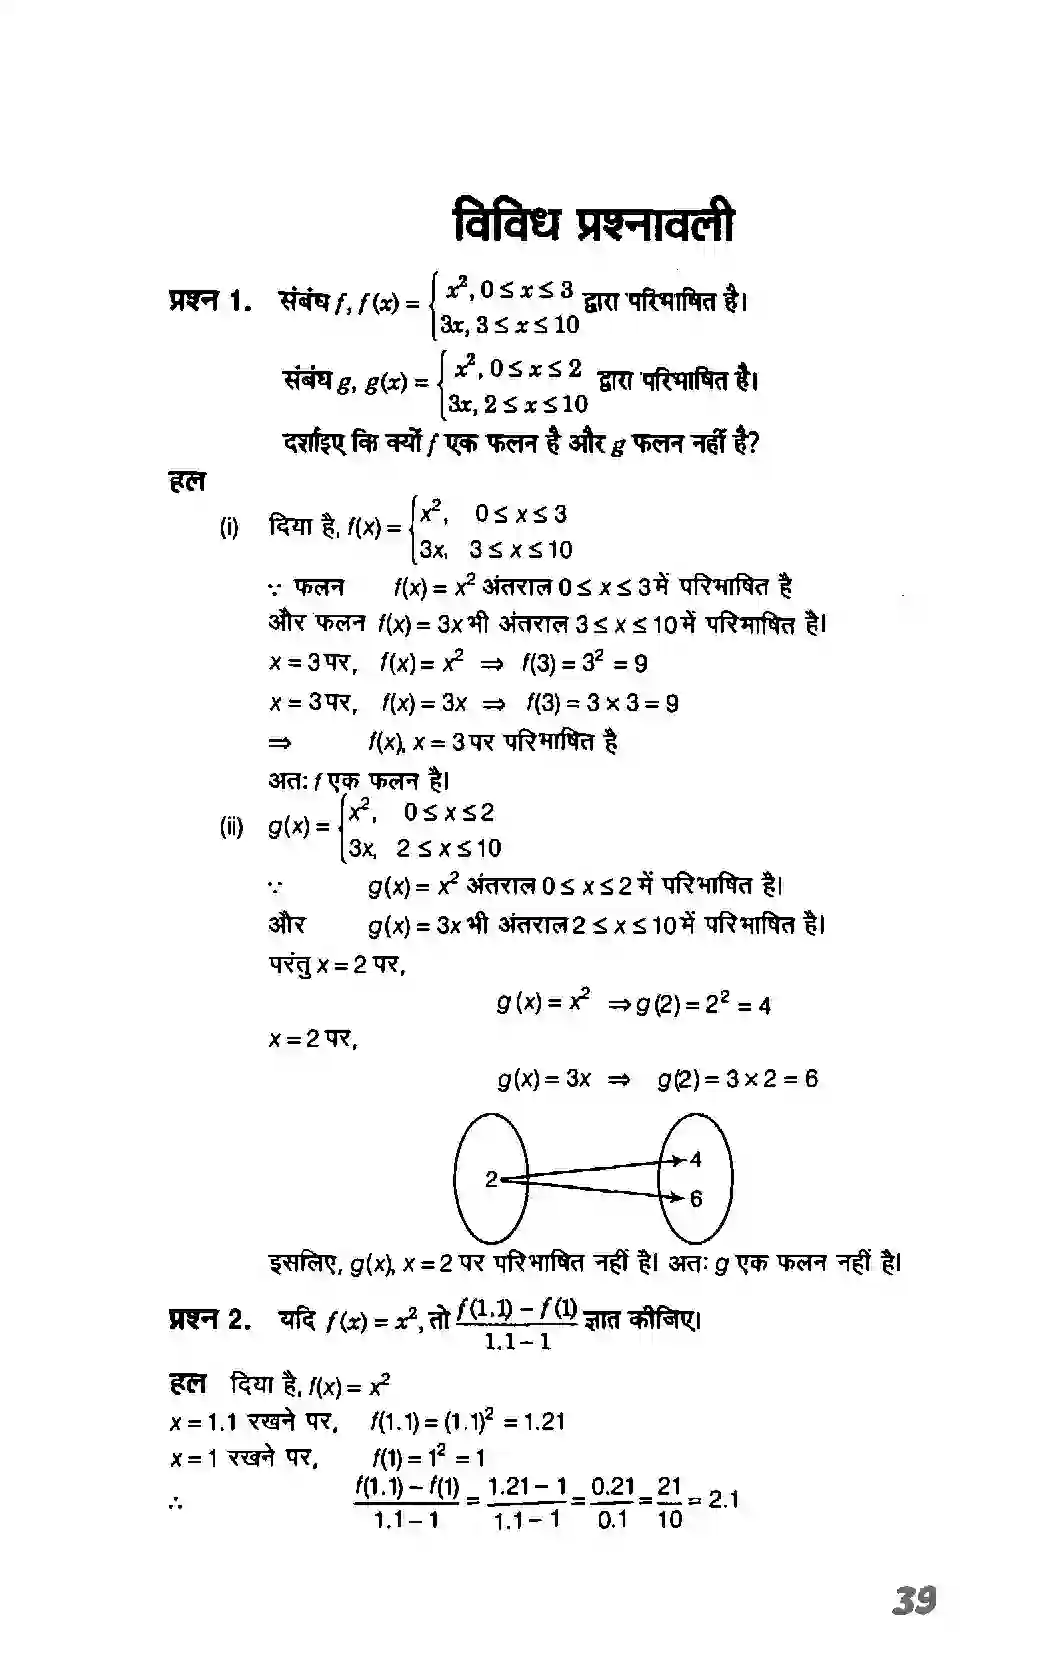 विविध प्रश्नावली
प्रश्न 1. संबंध f, f(x) = { x², 0 ≤ x ≤ 3 द्वारा परिभाषित है।
3x, 3 ≤ x ≤ 10
संबंध g, g(x) = { x², 0 ≤ x ≤ 2 द्वारा परिभाषित है।
3x, 2 ≤ x ≤ 10
दर्शाइए कि क्यों f एक फलन है और g फलन नहीं है?
हल
(i) दिया है, f(x) = { x², 0 ≤ x ≤ 3
3x, 3 ≤ x ≤ 10
∵ फलन f(x) = x² अंतराल 0 ≤ x ≤ 3 में परिभाषित है
और फलन f(x) = 3x भी अंतराल 3 ≤ x ≤ 10 में परिभाषित है।
x = 3 पर, f(x) = x² ⇒ f(3) = 3² = 9
x = 3 पर, f(x) = 3x ⇒ f(3) = 3 × 3 = 9
⇒ f(x), x = 3 पर परिभाषित है
अतः f एक फलन है।
(ii) g(x) = { x², 0 ≤ x ≤ 2
3x, 2 ≤ x ≤ 10
∵ g(x) = x² अंतराल 0 ≤ x ≤ 2 में परिभाषित है।
और g(x) = 3x भी अंतराल 2 ≤ x ≤ 10 में परिभाषित है।
परंतु x = 2 पर,
g(x) = x² ⇒ g(2) = 2² = 4
x = 2 पर,
g(x) = 3x ⇒ g(2) = 3 × 2 = 6
4
2
6
इसलिए, g(x), x = 2 पर परिभाषित नहीं है। अतः g एक फलन नहीं है।
प्रश्न 2. यदि f(x) = x², तो f(1.1) – f(1) ज्ञात कीजिए।
1.1 – 1
हल दिया है, f(x) = x²
x = 1.1 रखने पर, f(1.1) = (1.1)² = 1.21
x = 1 रखने पर, f(1) = 1² = 1
∴ f(1.1) – f(1) = 1.21 – 1 = 0.21 = 21 = 2.1
1.1 – 1 1.1 – 1 0.1 10
39